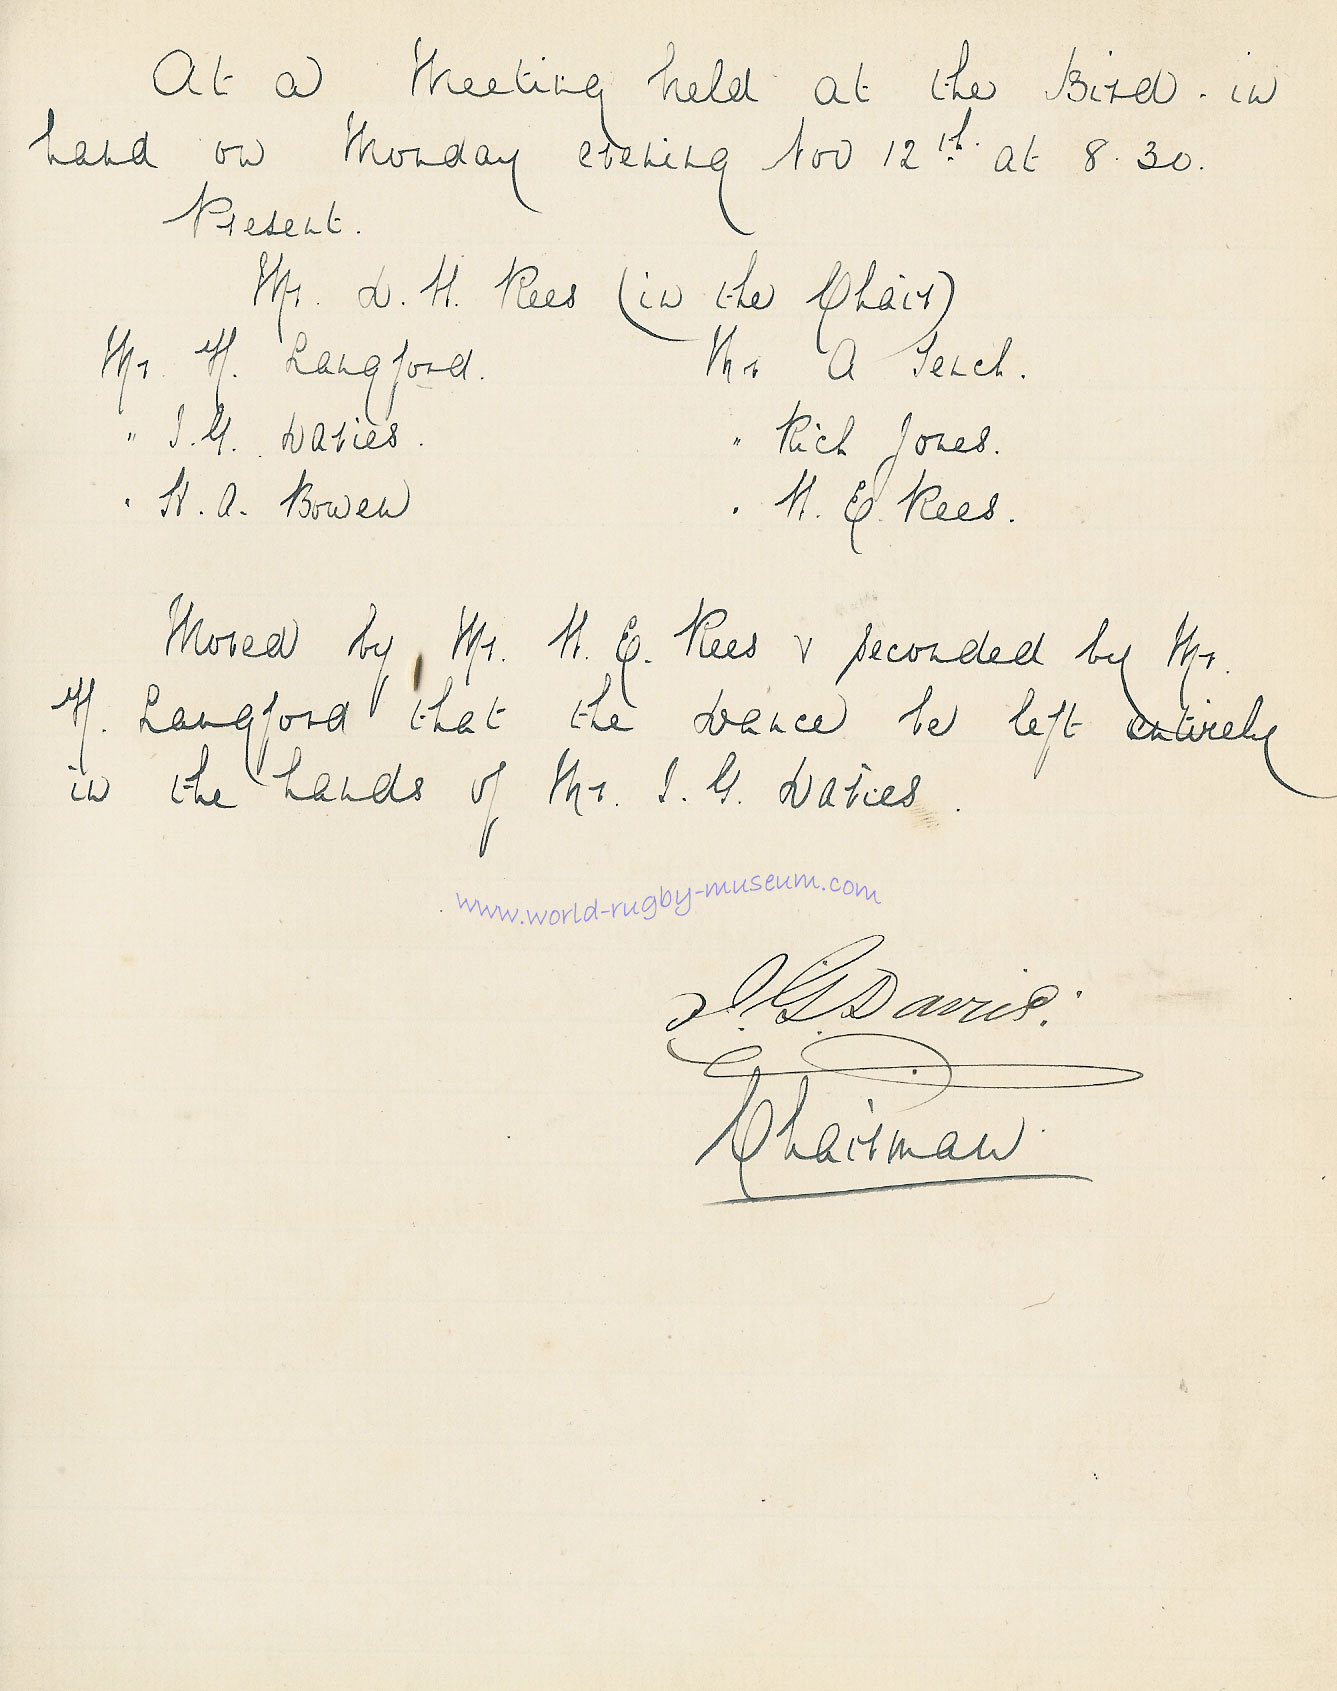 At a Meeting held at the Bird-in
hand on Monday evening Nov 12th at 8.30.
Present.
Mr. D. H. Rees (in the Chair)
Mr. H. Langford. Mr A Tench.
" I.G. Davies. " Rich Jones.
" H. A. Bowen " H. E. Rees.
Moved by Mr. H. E. Rees & seconded by Mr.
H. Langford that the Dance be left entirely
in the hands of Mr. I. G. Davies.
www.world-rugby-museum.com
I. G. Davies.
Chairman